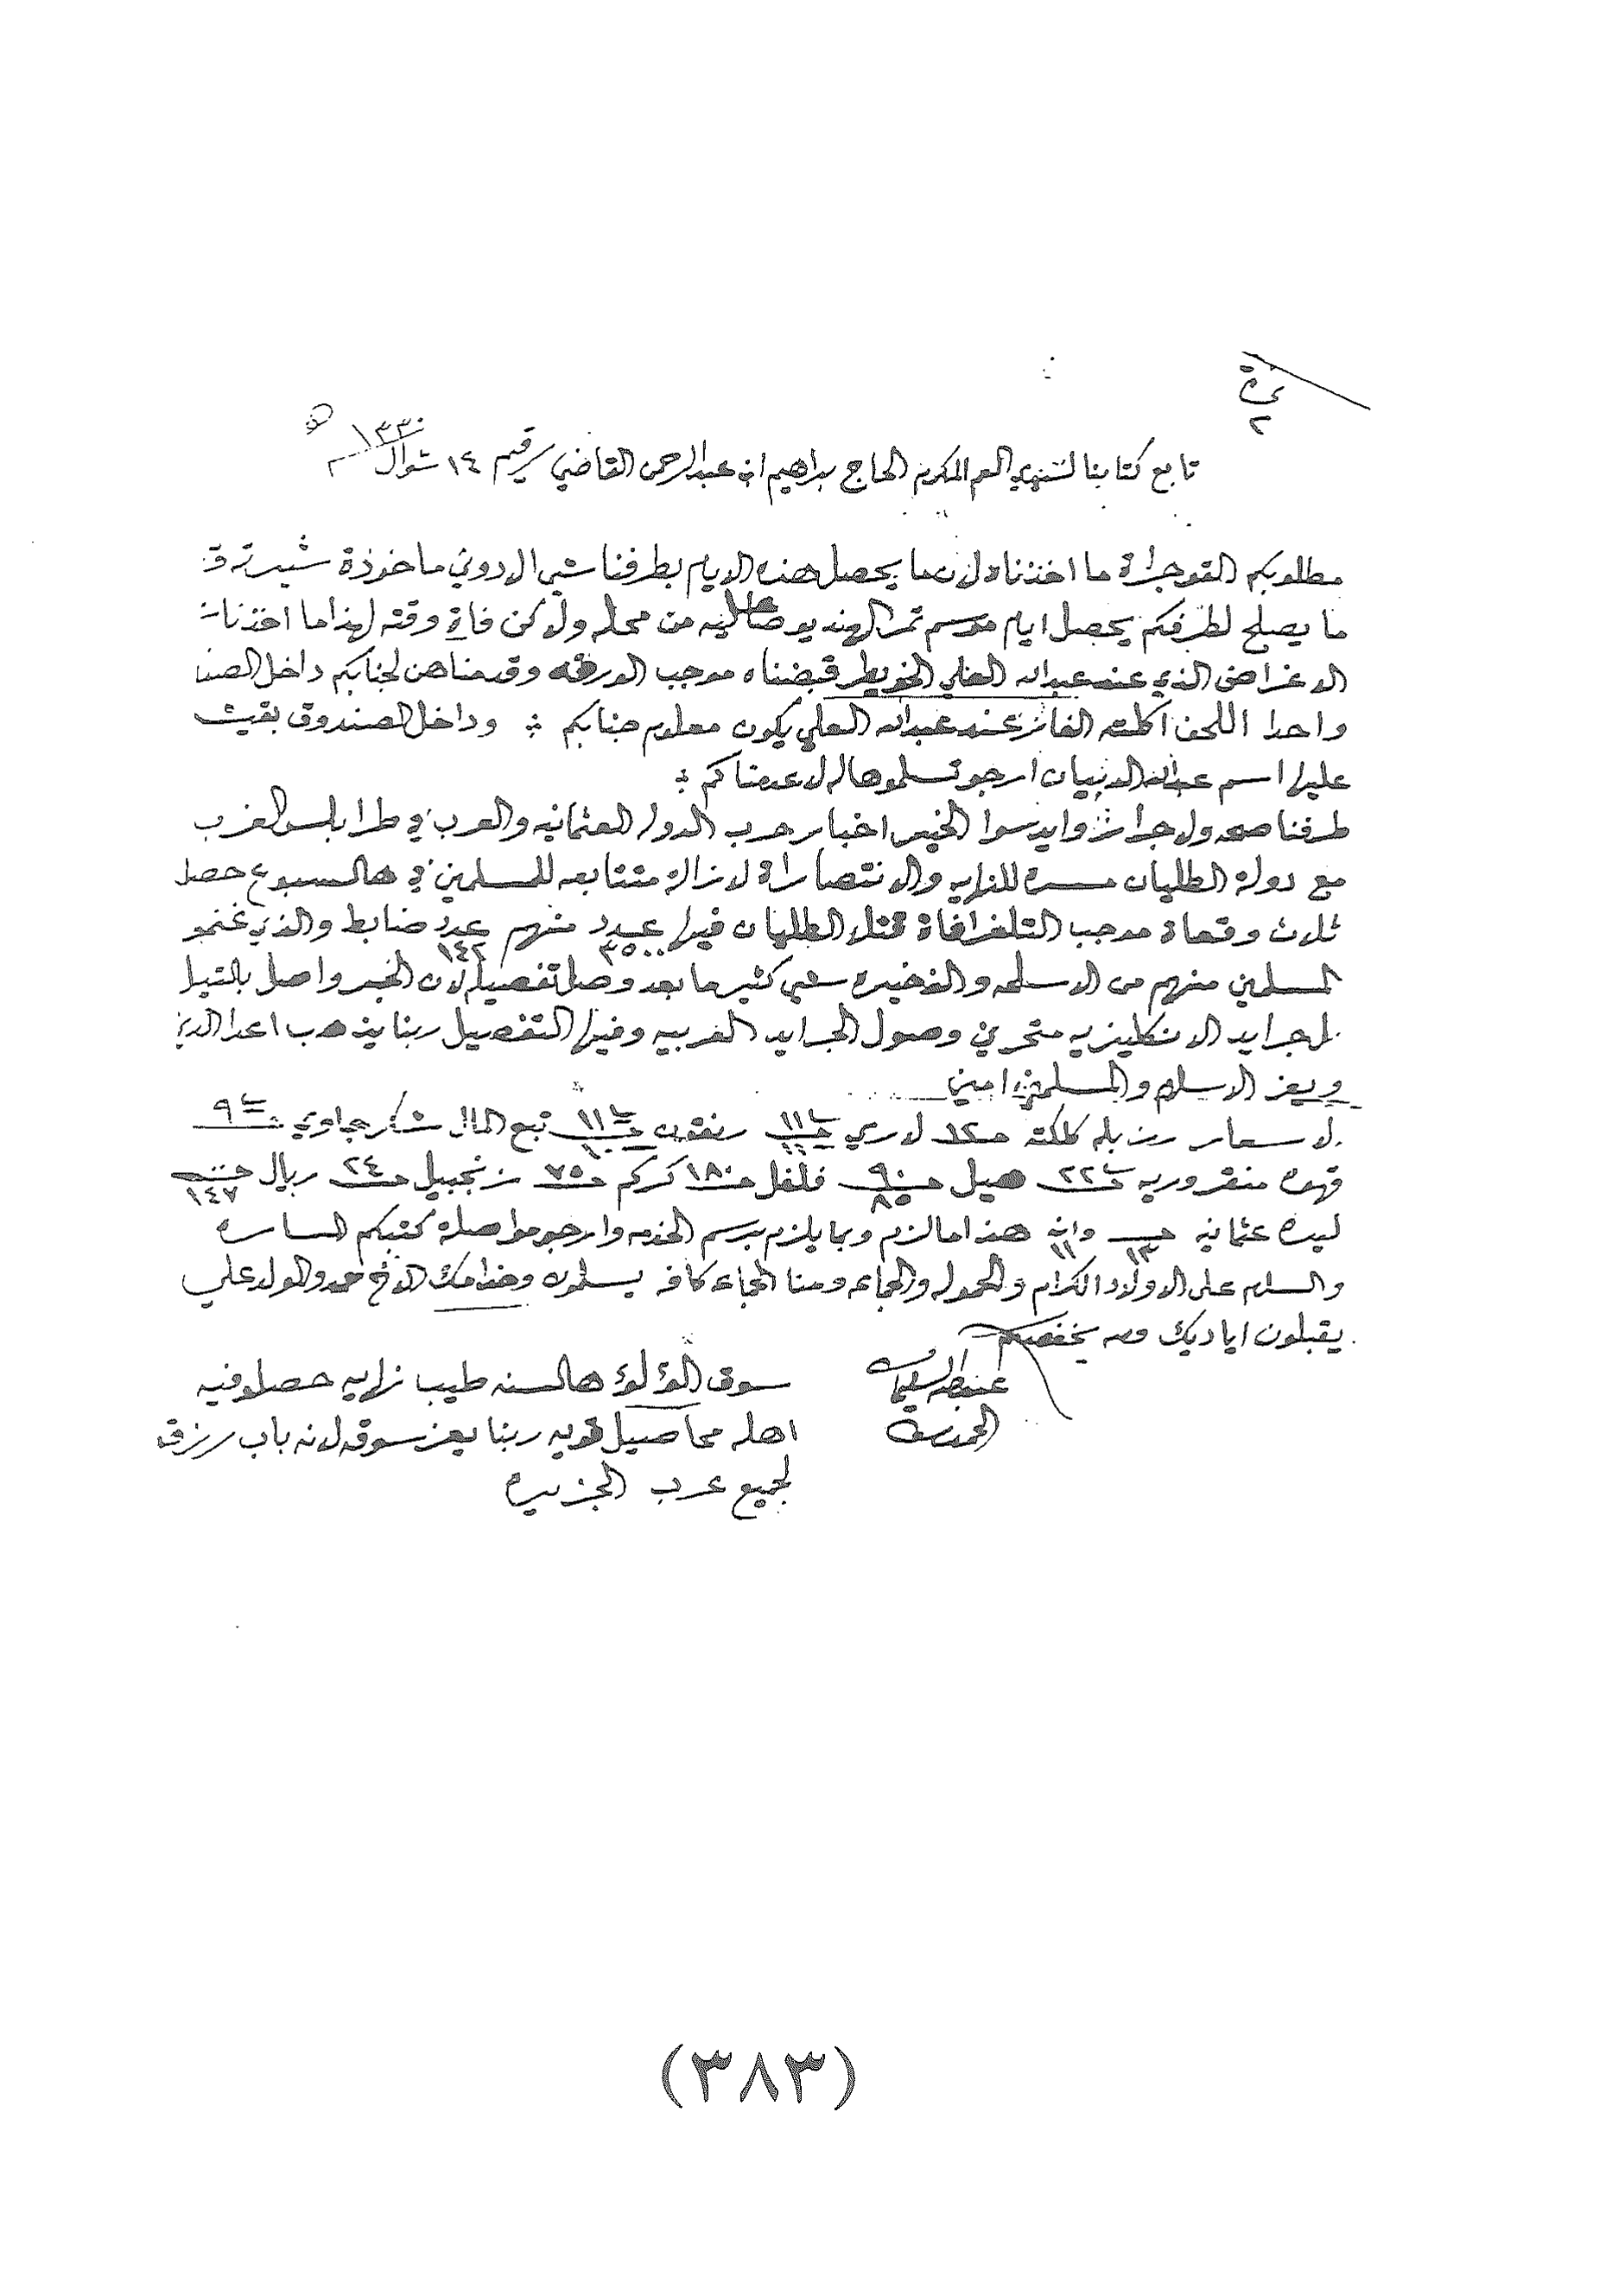 تابع كتابنا لسيدي العم المكرم الحاج براهيم ابن عبدالرحمن القاضي رقيم ١٤ شوال ١٣٣٠
مطلوبكم ما اخذناه لان ما يحصل هذه الايام بطرفنا شي الا دوني ماخوذة
ما يصلح لطرفكم يحصل ايام موسم تمر الهند من محله ولاكن فاة وقته لهذا ما اخذنا
الاغراض الذي عند عبدالله العلي الخويطر قبضناه موجب الورقه وقدمناهن لجنابكم داخل الصند
واحد اللحف اكلته الفار عند عبدالله العلي يكون معلوم جنابكم وداخل الصندوق بقيشه
عليها اسم عبدالله الذبيان ارجو تسلموها له لا عدمناكم
طرفنا صحه ولا جرا شي وايد سوا الخير اخبار حرب الدوله العثمانيه والعرب في طرابلس الغرب
مع دولة الطليان مسره للغايه والانتصاراة لازالة متتابعه للمسلمين في هالسبوع حصل
ثلاث وقعاة موجب التلغرافاة قتل الطليان فيها عدد ٣٥٠٠ منهم عدد ١٤٢ ضابط والذي غنمو
المسلمين منهم من الاسلحه والذخيره شي كثير ما بعد وصل تفصيله لان الخبر واصل بالتيل
لجرايد الانكليزيه متحرين وصول الجرايد العربيه وفيها التفصيل ربنا يذهب اعدا الدين
ويعز الاسلام والمسلمين امين
لاسعار رز بلم كلكته ١١ رنقون ١١ تبع المال شكر جاوي ٩
قهوه منقروريه ٢٢ هيل ٩٠ ٨٥ فلفل ١٨٠ كركم ٧٥ زنجبيل ٢٤ ريال ١٤٧
ليره عثمانيه ١٣ وانه ١١ هذا مالزم وبما يلزم برسم الخدمه وارجو مواصلة كتبكم الساره
والسلام على الاولاد الكرام والحموله والجماعه ومنا الجماعه كافه يسلمون وخدامك الاخ حمد والولد علي
يقبلون اياديك والله يحفظكم
عبدالله السليمان
سوق الؤلؤ هالسنه طيب للغايه حصلو فيه
اهله محاصيل قويه ربنا يعز سوقه لانه باب رزق
لجميع عرب الجزيره
(٣٨٣)